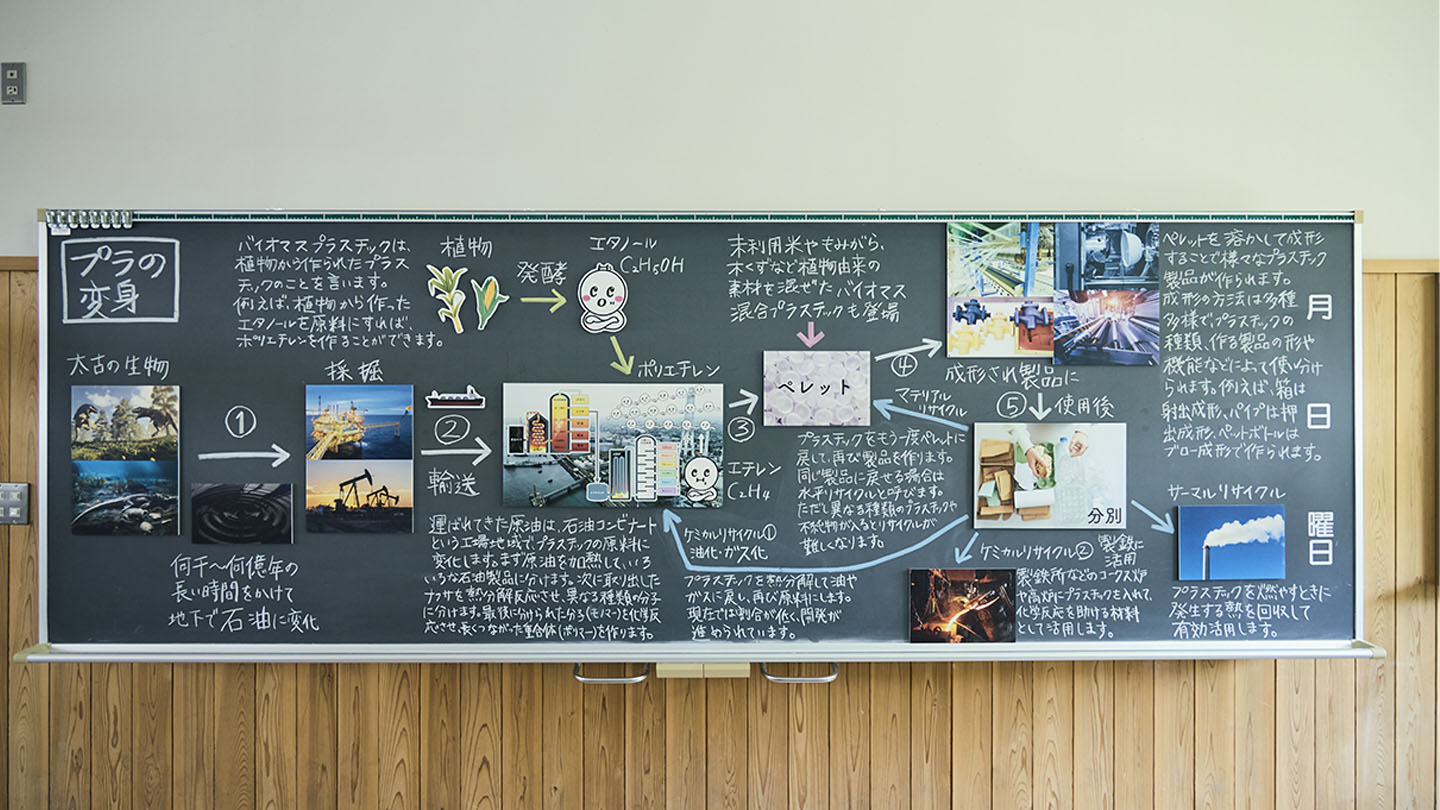 プラの
変身
バイオマスプラスチックは、
植物から作られたプラス
チックのことを言います。
例えば、植物から作った
エタノールを原料にすれば、
ポリエチレンを作ることができます。
植物
発酵
エタノール
C₂H₅OH
未利用米やもみがら、
木くずなど植物由来の
素材を混ぜたバイオマス
混合プラスチックも登場
太古の生物
①
何千〜何億年の
長い時間をかけて
地下で石油に変化
採掘
②
輸送
ポリエチレン
運ばれてきた原油は、石油コンビナート
という工場地域でプラスチックの原料に
変化します。まず原油を加熱して、いろ
いろな石油製品に分けます。次に取り出した
ナフサを熱分解反応させ、異なる種類の分子
に分けます。最後に分けられた分子(モノマー)を化学反
応させ、長くつながった重合体(ポリマー)を作ります。
③
エチレン
C₂H₄
ペレット
④
成形され製品に
ペレットを溶かして成形
することで様々なプラスチック
製品が作られます。
成形の方法は多種
多様で、プラスチックの
種類、作る製品の形や
機能などによって使い分け
られます。例えば、箱は
射出成形、パイプは押
出成形、ペットボトルは
ブロー成形で作られます。
⑤
使用後
分別
マテリアル
リサイクル
プラスチックをもう一度ペレットに
戻し、再び製品を作ります。
同じ製品に戻せる場合は
水平リサイクルと呼びます。
ただし異なる種類のプラスチックや
不純物が入るとリサイクルが
難しくなります。
ケミカルリサイクル①
油化・ガス化
プラスチックを熱分解して油や
ガスに戻し、再び原料にします。
現在では割合が低く、開発が
進められています。
ケミカルリサイクル②
製鉄に
活用
製鉄所などのコークス炉
や高炉にプラスチックを入れて、
化学反応を助ける材料
として活用します。
サーマルリサイクル
プラスチックを燃やすときに
発生する熱を回収して
有効活用します。
月
日
曜日